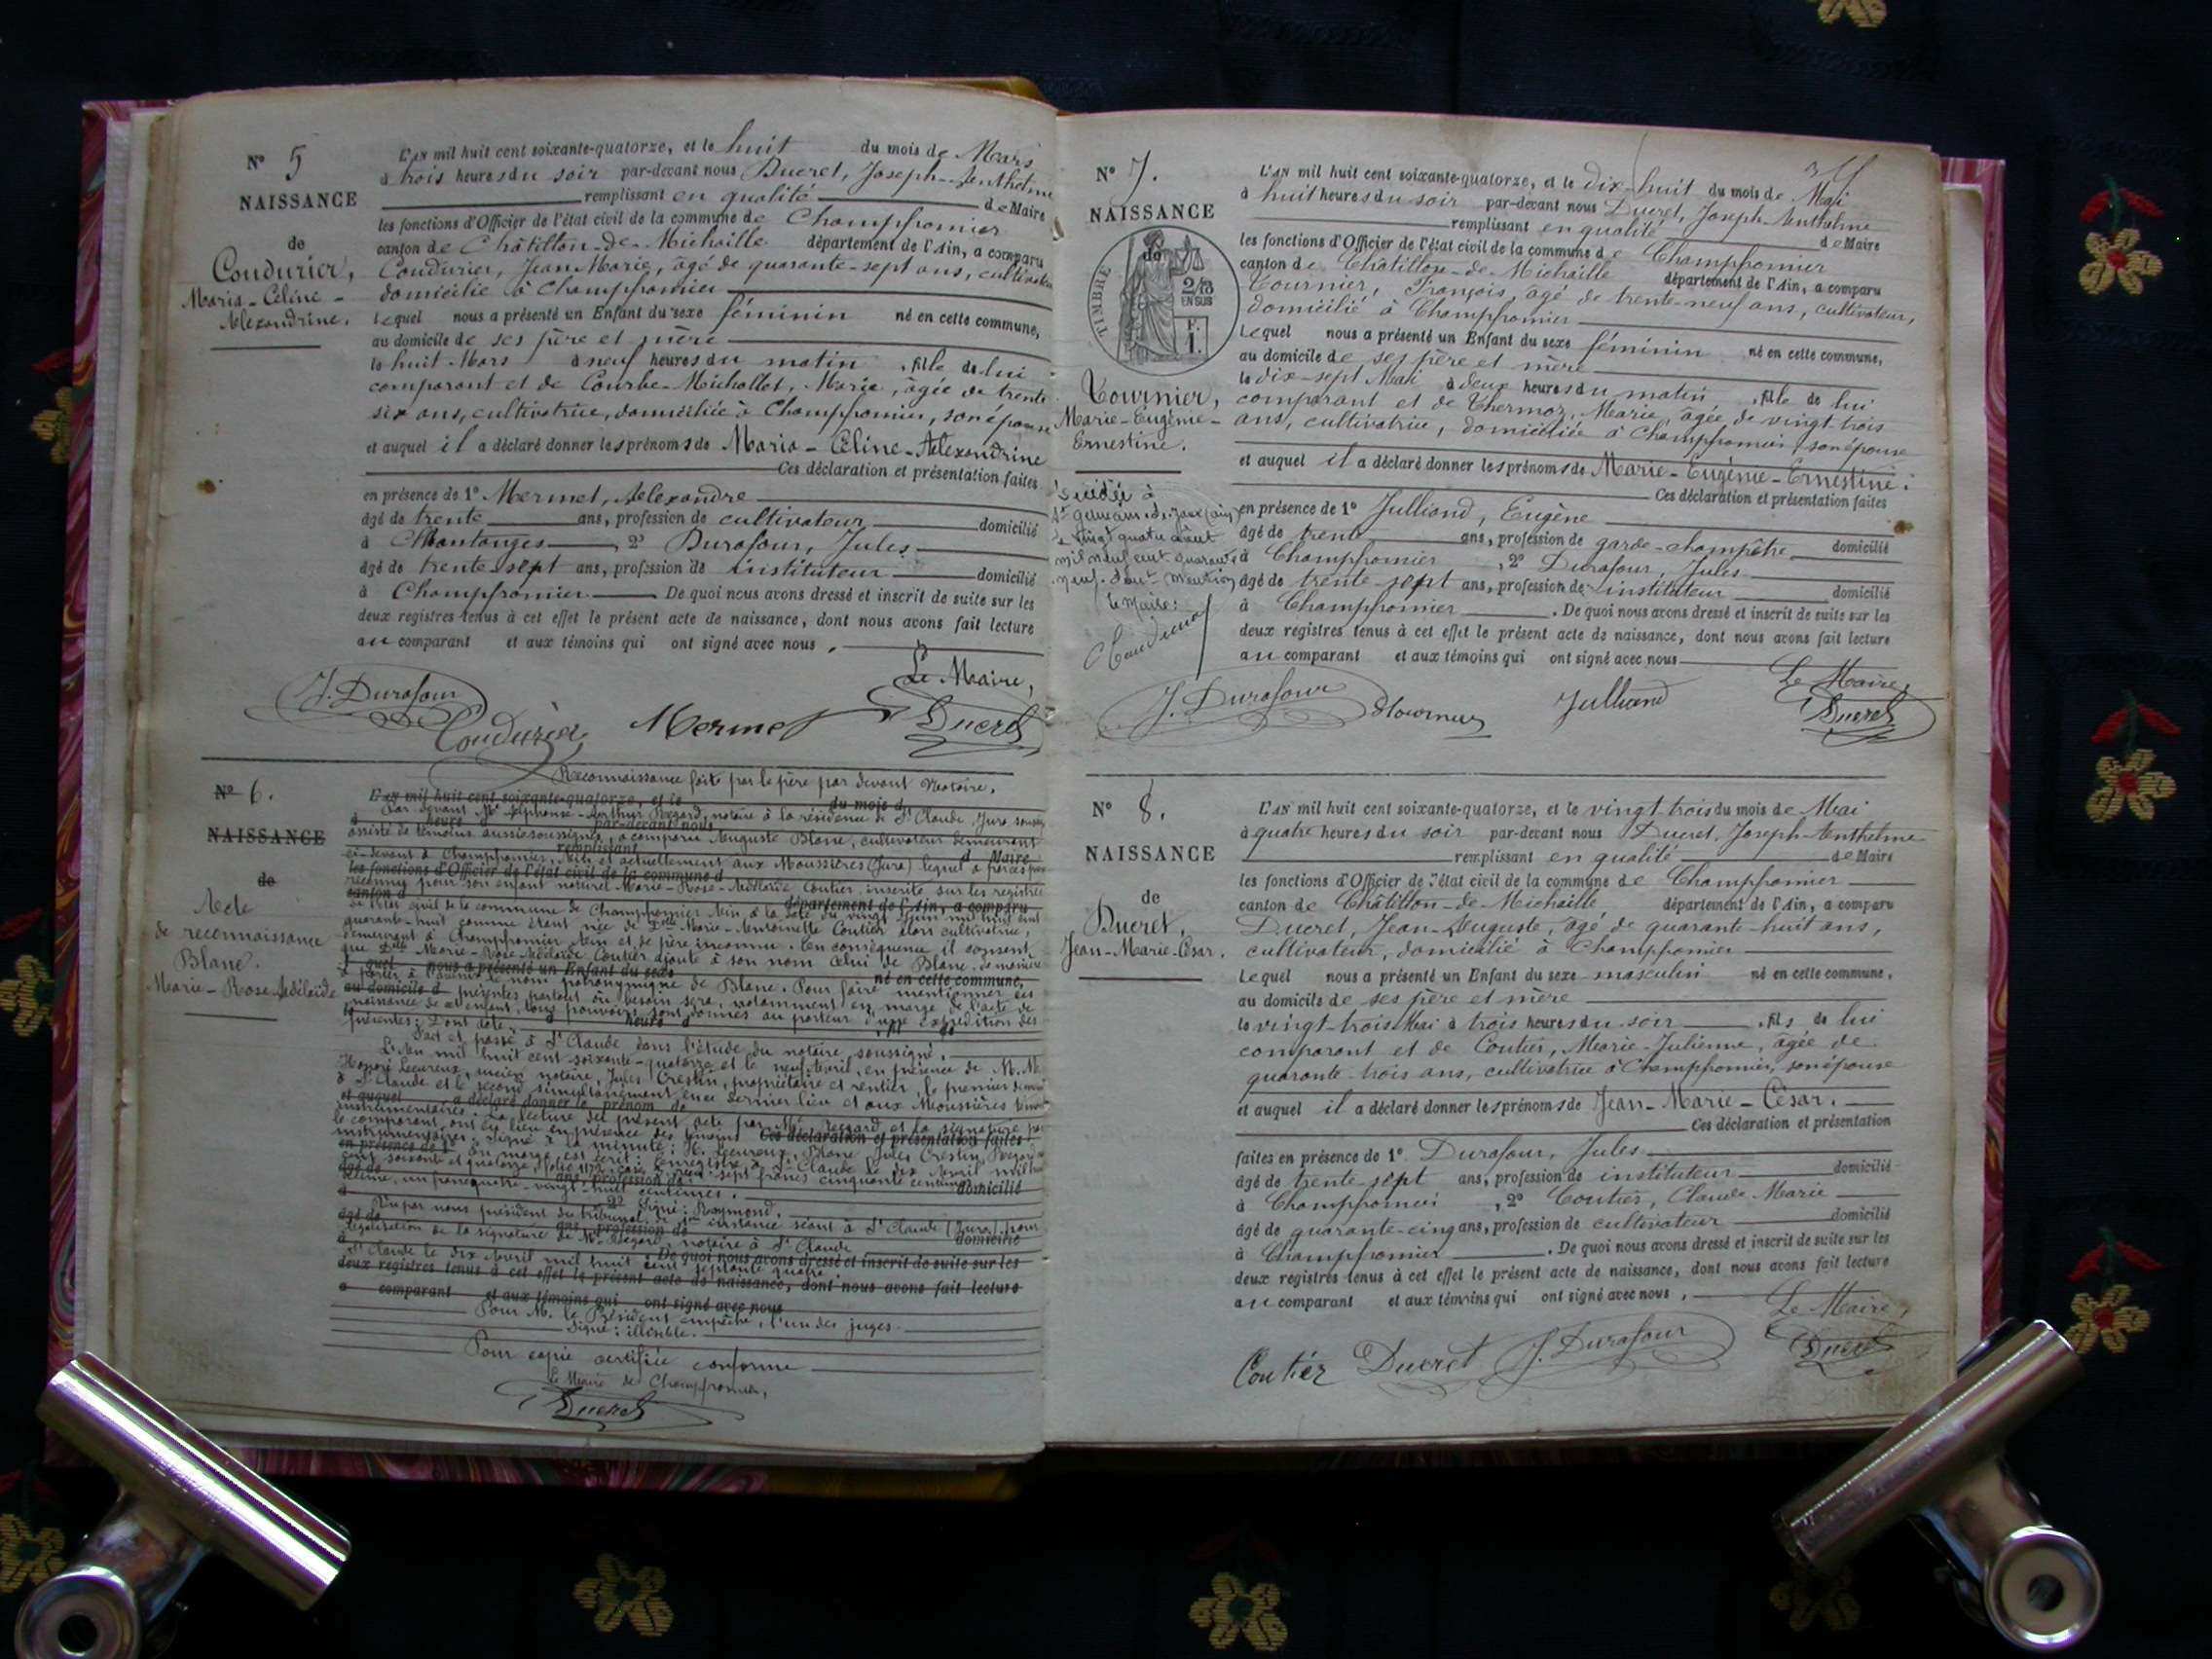 N° 5
NAISSANCE
de
Coudurier,
Maria-Céline-
Alexandrine.
L'AN mil huit cent soixante-quatorze, et le huit du mois de Mars
à trois heures du soir par-devant nous Ducret, Joseph-Anthelme
remplissant en qualité de Maire
les fonctions d'Officier de l'état civil de la commune de Champfromier
canton de Châtillon-de-Michaille département de l'Ain, a comparu
Coudurier, Jean Marie, âgé de quarante-sept ans, cultivateur
domicilié à Champfromier
Lequel nous a présenté un Enfant du sexe féminin né en cette commune,
au domicile de ses père et mère
le huit Mars à neuf heures du matin, fille de lui
comparant et de Courbe-Michollet, Marie, âgée de trente
six ans, cultivatrice, domiciliée à Champfromier, son épouse
et auquel il a déclaré donner les prénoms de Maria-Céline-Alexandrine
Ces déclaration et présentation faites
en présence de 1° Mermet, Alexandre
âgé de trente ans, profession de cultivateur domicilié
à Montanges, 2° Durafour, Jules
âgé de trente-sept ans, profession de instituteur domicilié
à Champfromier De quoi nous avons dressé et inscrit de suite sur les
deux registres tenus à cet effet le présent acte de naissance, dont nous avons fait lecture
au comparant et aux témoins qui ont signé avec nous.
Le Maire,
J. Durafour
Coudurier Mermet Ducret
N° 6.
NAISSANCE
de
Acte
de reconnaissance
Blanc.
Marie-Rose-Adélaïde
Reconnaissance faite par le père par devant Notaire.
L'AN mil huit cent soixante-quatorze, et le du mois d
Par devant Me Alphonse-Arthur Regard, notaire à la résidence de St Claude, Jura
à heure d par-devant nous
assisté de témoins aussi soussignés, a comparu Auguste Blanc, cultivateur demeurant
remplissant d Maire
ci-devant à Champfromier, Ain et actuellement aux Moussières (Jura) lequel a
les fonctions d'Officier de l'état civil de la commune d
reconnu pour son enfant naturel Marie-Rose-Adélaïde Coutier, inscrite sur les registres
canton d département de l'Ain, a comparu
de l'état civil de la commune de Champfromier Ain, à la date du vingt mil huit cent
quarante-huit comme étant née de Dlle Marie-Antoinette Coutier alors cultivatrice,
demeurant à Champfromier Ain et de père inconnu. En conséquence il consent
que Dlle Marie-Rose-Adélaïde Coutier ajoute à son nom celui de Blanc, de manière
quel nous a présenté un Enfant du sexe né en cette commune,
à porter à l'avenir le nom patronymique de Blanc. Pour faire mentionner ces
au domicile d
présentes partout où besoin sera, notamment en marge de l'acte de
naissance de enfant, tous pouvoirs sont donnés au porteur d'une expédition des
présentes: Dont acte. heure d
Fait et passé à St Claude dans l'étude du notaire soussigné.
L'An mil huit cent soixante-quatorze et le neuf Avril, en présence de M.M.
Honoré Lecureux, ancien notaire, Jules Crestin, propriétaire et rentier, le premier
à St Claude et le second simultanément en ce dernier lieu et aux Moussières témoins
et auquel a déclaré donner le prénom de
instrumentaires. La lecture du présent acte par Me Regard et la signature par
le comparant ont eu lieu en présence des témoins Ces déclaration et présentation faites
instrumentaires. Signé à la minute: H. Lecureux, Blanc, Jules Crestin, Regard
en présence de 1° En marge est écrit: Enregistré à St Claude le dix Avril mil huit
cent soixante et quatorze, folio sept francs cinquante centimes
âgé de ans, profession de domicilié
décime, un franc quatre-vingt-huit centimes.
2° Signé: Raymond.
Vu par nous président du tribunal de 1ère instance séant à St Claude (Jura) pour
âgé de ans, profession de domicilié
légalisation de la signature de Me Regard, notaire à St Claude
St Claude le dix Avril mil huit cent septante quatre
De quoi nous avons dressé et inscrit de suite sur les
deux registres tenus à cet effet le présent acte de naissance, dont nous avons fait lecture
a comparant et aux témoins qui ont signé avec nous
Pour M. le Président empêché, l'un des juges
Signé: illisible.
Pour copie certifiée conforme
Le Maire de Champfromier,
Ducret
N° 7.
NAISSANCE
de
TIMBRE
2/10
EN SUS
F.
1.
Tournier,
Marie-Eugénie-
Ernestine.
Décédée à
St Germain-de-Joux (Ain)
le vingt quatre août
mil neuf cent quarante
neuf. Dont mention
Le Maire:
L'AN mil huit cent soixante-quatorze, et le dix-huit du mois de Mai
à huit heures du soir par-devant nous Ducret, Joseph Anthelme
remplissant en qualité de Maire
les fonctions d'Officier de l'état civil de la commune de Champfromier
canton de Châtillon-de-Michaille département de l'Ain, a comparu
Tournier, François, âgé de trente-neuf ans, cultivateur,
domicilié à Champfromier
Lequel nous a présenté un Enfant du sexe féminin né en cette commune,
au domicile de ses père et mère
le dix-sept Mai à deux heures du matin, fille de lui
comparant et de Thermoz, Marie, âgée de vingt trois
ans, cultivatrice, domiciliée à Champfromier, son épouse
et auquel il a déclaré donner les prénoms de Marie-Eugénie-Ernestine.
Ces déclaration et présentation faites
en présence de 1° Julliand, Eugène
âgé de trente ans, profession de garde-champêtre domicilié
à Champfromier, 2° Durafour, Jules
âgé de trente-sept ans, profession de instituteur domicilié
à Champfromier. De quoi nous avons dressé et inscrit de suite sur les
deux registres tenus à cet effet le présent acte de naissance, dont nous avons fait lecture
au comparant et aux témoins qui ont signé avec nous
Le Maire,
J. Durafour Tournier Julliand Ducret
N° 8.
NAISSANCE
de
Ducret,
Jean-Marie-César.
L'AN mil huit cent soixante-quatorze, et le vingt trois du mois de Mai
à quatre heures du soir par-devant nous Ducret, Joseph-Anthelme
remplissant en qualité de Maire
les fonctions d'Officier de l'état civil de la commune de Champfromier
canton de Châtillon-de-Michaille département de l'Ain, a comparu
Ducret, Jean-Auguste, âgé de quarante-huit ans,
cultivateur, domicilié à Champfromier
Lequel nous a présenté un Enfant du sexe masculin né en cette commune,
au domicile de ses père et mère
le vingt-trois Mai à trois heures du soir, fils de lui
comparant et de Coutier, Marie-Julienne, âgée de
quarante-trois ans, cultivatrice à Champfromier, son épouse
et auquel il a déclaré donner les prénoms de Jean-Marie-César.
Ces déclaration et présentation
faites en présence de 1° Durafour, Jules
âgé de trente-sept ans, profession de instituteur domicilié
à Champfromier, 2° Coutier, Claude Marie
âgé de quarante-cinq ans, profession de cultivateur domicilié
à Champfromier. De quoi nous avons dressé et inscrit de suite sur les
deux registres tenus à cet effet le présent acte de naissance, dont nous avons fait lecture
au comparant et aux témoins qui ont signé avec nous.
Le Maire,
Coutiér Ducret J. Durafour Ducret